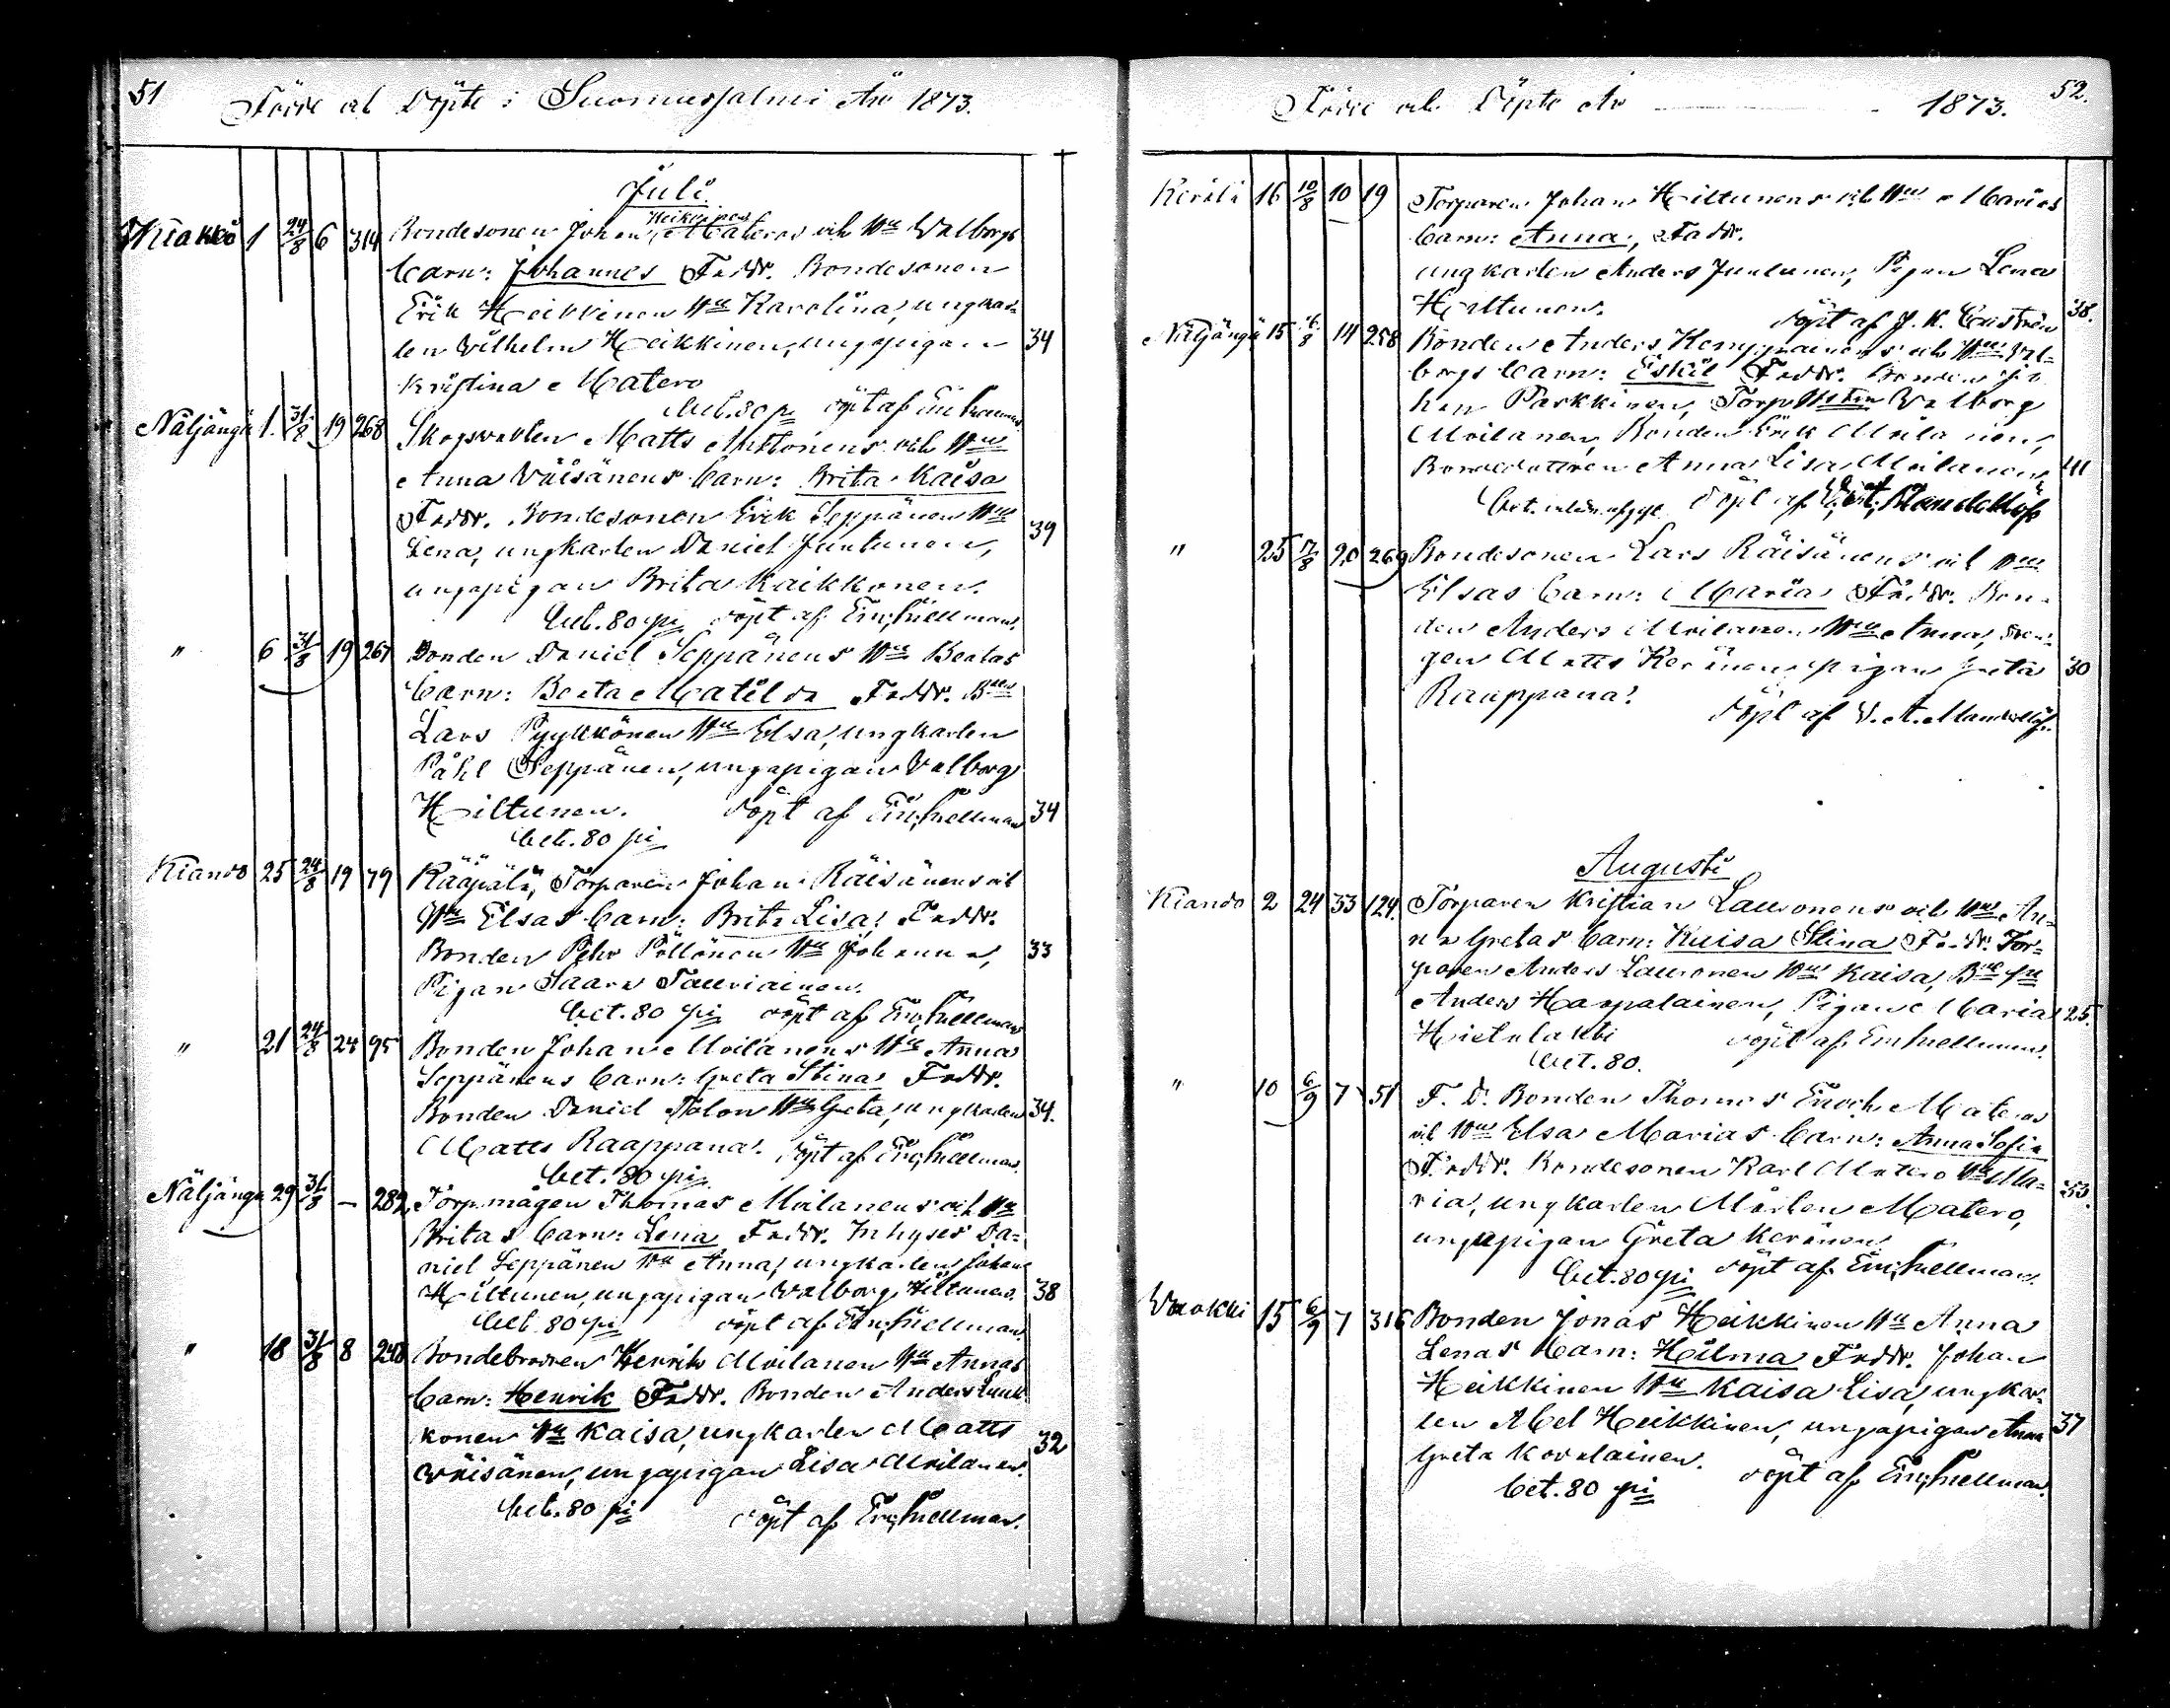 51
Födde och Döpte i Suomussalmi År 1873.
Juli.
Kiakko 1 24/8 6 314 Bondesonen Johan Heikkinen Materos och Hu Walborgs
barn: Johannes Faddr. Bondesonen
Erik Heikkinen Hu Karolina, ungkar-
len Wilhelm Heikkinen, ungapigan 34
Kristina Matero
bet. 80 pi döpt af Em. Snellman
Näljängä 1. 31/8 19 268 Skogvakten Matts Anttonens och Hus
Anna Väisänens barn: Brita Kaisa
Faddr. Bondesonen Erik Seppänen Hu
Lena, ungkarlen Daniel Juntunen, 39
ungapigan Brita Kaikkonen.
bet. 80 pi döpt af Em. Snellman.
" 6 31/8 19 267 Bonden Daniel Seppänens Hu Beatas
barn: Beata Matilda Faddr. Bden
Lars Pyykkönen Hu Elsa, ungkarlen
Påhl Seppänen, ungapigan Valborg
Hiltunen. döpt af Em. Snellman 34
bet. 80 pi
Kiando 25 24/8 19 79 Rääpälä, Torparen Johan Räisänens och
Hu Elsas barn: Brita Lisa, Faddr.
Bonden Pehr Pöllönen Hu Johanna, 33
Pigan Saara Tauriainen.
bet. 80 pi döpt af Em. Snellman
" 21 24/8 24 95 Bonden Johan Moilanens Hu Anna
Seppänens barn: Greta Stina Faddr.
Bonden Daniel Talon Hu Greta, ungkarlen 34.
Matts Raappana. döpt af Em. Snellman.
bet. 80 pi
Näljänga 29 31/8 – 282, Torp.mågen Thomas Moilanens och Hu
Britas barn: Lena Faddr. Inhyses Da-
niel Seppänen Hu Anna, ungkarlen Johan
Hiltunen, ungapigan Walborg Hiltunen. 38
bet. 80 pi döpt af Em. Snellman.
" 18 31/8 8 248 Bondebrodren Henrik Moilanen Hu Annas
barn: Henrik Faddr. Bonden Anders Luuk
konen Hu Kaisa, ungkarlen Matts
Wäisänen, ungapigan Lisa Moilanen. 32
bet. 80 pi döpt af Em. Snellman.
52.
Födde och Döpte År 1873.
Kerälä 16 10/8 10 19 Torparen Johan Hiltunens och Hus Marias
barn: Anna, Faddr.
ungkarlen Anders Juntunen, Pigan Lena
Hiltunen. döpt af J. K. 38.
Näljängä 15 8 14 258 Bonden Anders Kemppainens och Hus Val-
borgs barn: Eskil Faddr. Bonden Jo
han Parkkinen, Torp Valborg
Moilanen, Bonden Erik Moilanen,
Bondedottren Anna Lisa Moilanen 41
döpt af V. A. Mandellöf
" 25 17/8 20 269 Bondesonen Lars Räisänens och Hus
Elsas barn: Maria Faddr. Bon-
den Anders Moilanen Hu Anna, drän-
gen Matts Keränen, pigan Greta 30
Raappana.
döpt af V. A. Mandellöf.
Augusti
Kiando 2 24 33 124. Torparen Kristian Lauronens och Hus An-
na Gretas barn: Kaisa Stina Faddr. Tor-
paren Anders Lauronen Hus Kaisa,
Anders Haapalainen, Pigan Maria 25.
Hietalahti döpt af Em Snellman.
bet. 80.
" 10 6/9 7 51 F. D. Bonden Thomas Enoch Materos
och Hus Elsa Marias barn: Anna Sofia
Faddr. Bondesonen Karl Matero Hu Ma-
ria, ungkarlen Mårten Matero, 53.
ungapigan Greta Keränen
bet. 80 pi döpt af Em. Snellman.
Vuokki 15 6/9 7 316 Bonden Jonas Heikkinen Hu Anna
Lenas barn: Hilma Faddr. Johan
Heikkinen Hu Kaisa Lisa, ungkar-
len Abel Heikkinen, ungapigan Anna 37
Greta Kovalainen.
bet. 80 pi döpt af Em. Snellman.